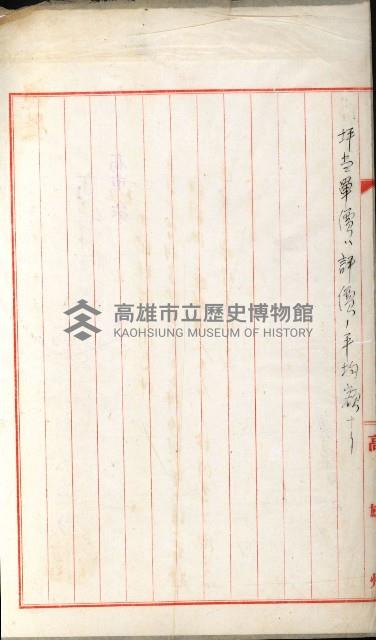 坪当單價ハ評價ノ平均額ナリ
高雄州
高雄市立歷史博物館
KAOHSIUNG MUSEUM OF HISTORY